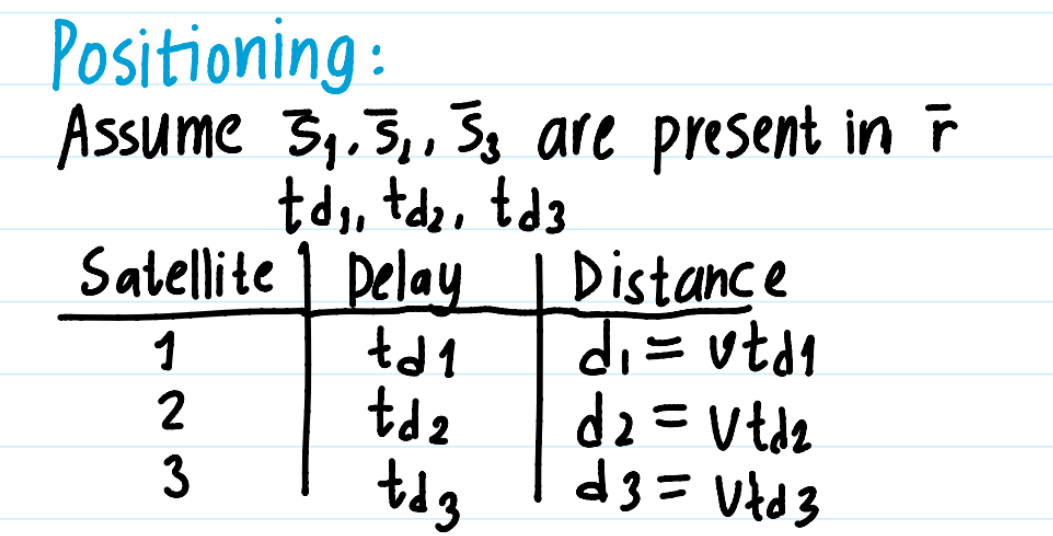 Positioning:
Assume s̄₁, s̄₂, s̄₃ are present in r̄
td₁, td₂, td₃
Satellite | Delay | Distance
1 | td1 | d₁ = vtd1
2 | td2 | d2 = vtd2
3 | td3 | d3 = vtd3